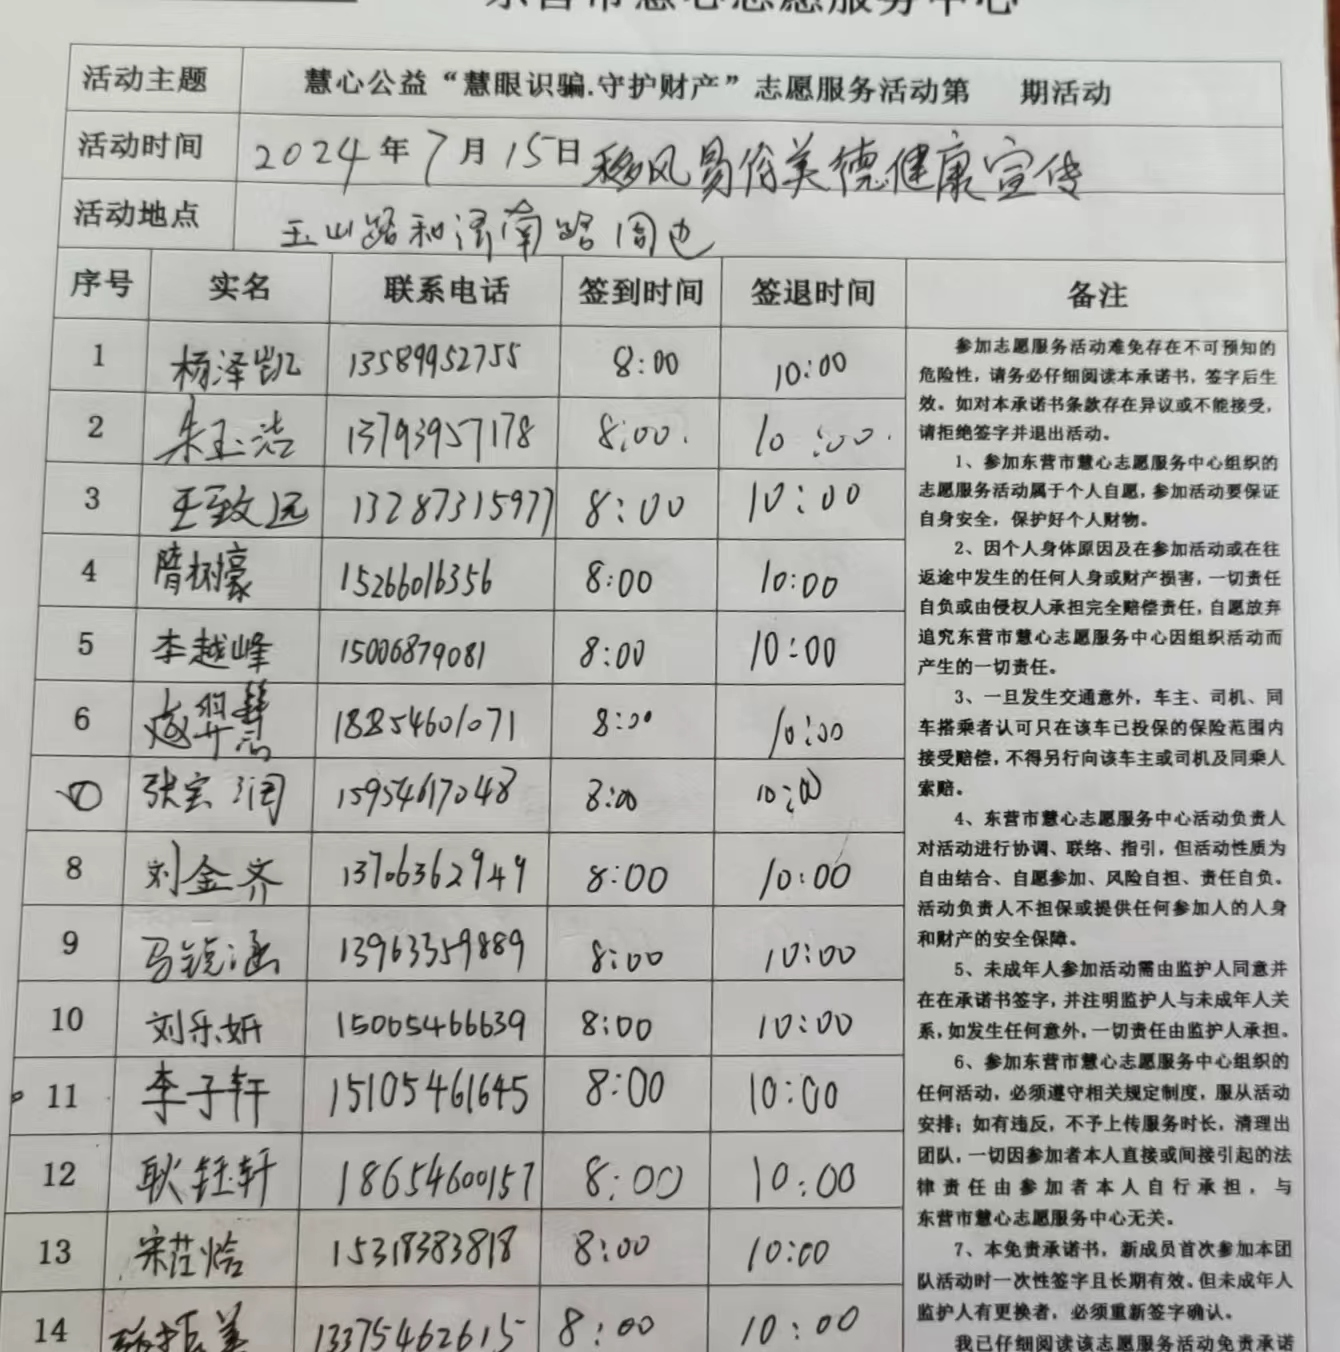 东营市慧心志愿服务中心
活动主题 慧心公益“慧眼识骗.守护财产”志愿服务活动第 期活动
活动时间 2024年7月15日 移风易俗美德健康宣传
活动地点 玉山路和济南路周边
序号 实名 联系电话 签到时间 签退时间 备注
1 杨泽凯 13589952755 8:00 10:00
2 朱玉浩 13793957178 8:00. 10:00.
3 王致远 13287315977 8:00 10:00
4 隋树豪 15266016356 8:00 10:00
5 李越峰 15006879081 8:00 10:00
6 赵 18854601071 8:00 10:00
张宝润 15954617048 8:00 10:00
8 刘金齐 13706362949 8:00 10:00
9 马锐涵 13963359889 8:00 10:00
10 刘乐妍 15065466639 8:00 10:00
11 李子轩 15105461645 8:00 10:00
12 耿钰轩 18654600157 8:00 10:00
13 宋 15318383818 8:00 10:00
14 13375462615 8:00 10:00
参加志愿服务活动难免存在不可预知的
危险性，请务必仔细阅读本承诺书，签字后生
效。如对本承诺书条款存在异议或不能接受，
请拒绝签字并退出活动。
1、参加东营市慧心志愿服务中心组织的
志愿服务活动属于个人自愿，参加活动要保证
自身安全，保护好个人财物。
2、因个人身体原因及在参加活动或在往
返途中发生的任何人身或财产损害，一切责任
自负或由侵权人承担完全赔偿责任，自愿放弃
追究东营市慧心志愿服务中心因组织活动而
产生的一切责任。
3、一旦发生交通意外，车主、司机、同
车搭乘者认可只在该车已投保的保险范围内
接受赔偿，不得另行向该车主或司机及同乘人
索赔。
4、东营市慧心志愿服务中心活动负责人
对活动进行协调、联络、指引，但活动性质为
自由结合、自愿参加、风险自担、责任自负。
活动负责人不担保或提供任何参加人的人身
和财产的安全保障。
5、未成年人参加活动需由监护人同意并
在在承诺书签字，并注明监护人与未成年人关
系，如发生任何意外，一切责任由监护人承担。
6、参加东营市慧心志愿服务中心组织的
任何活动，必须遵守相关规定制度，服从活动
安排；如有违反，不予上传服务时长，清理出
团队，一切因参加者本人直接或间接引起的法
律责任由参加者本人自行承担，与
东营市慧心志愿服务中心无关。
7、本免责承诺书，新成员首次参加本团
队活动时一次性签字且长期有效。但未成年人
监护人有更换者，必须重新签字确认。
我已仔细阅读该志愿服务活动免责承诺